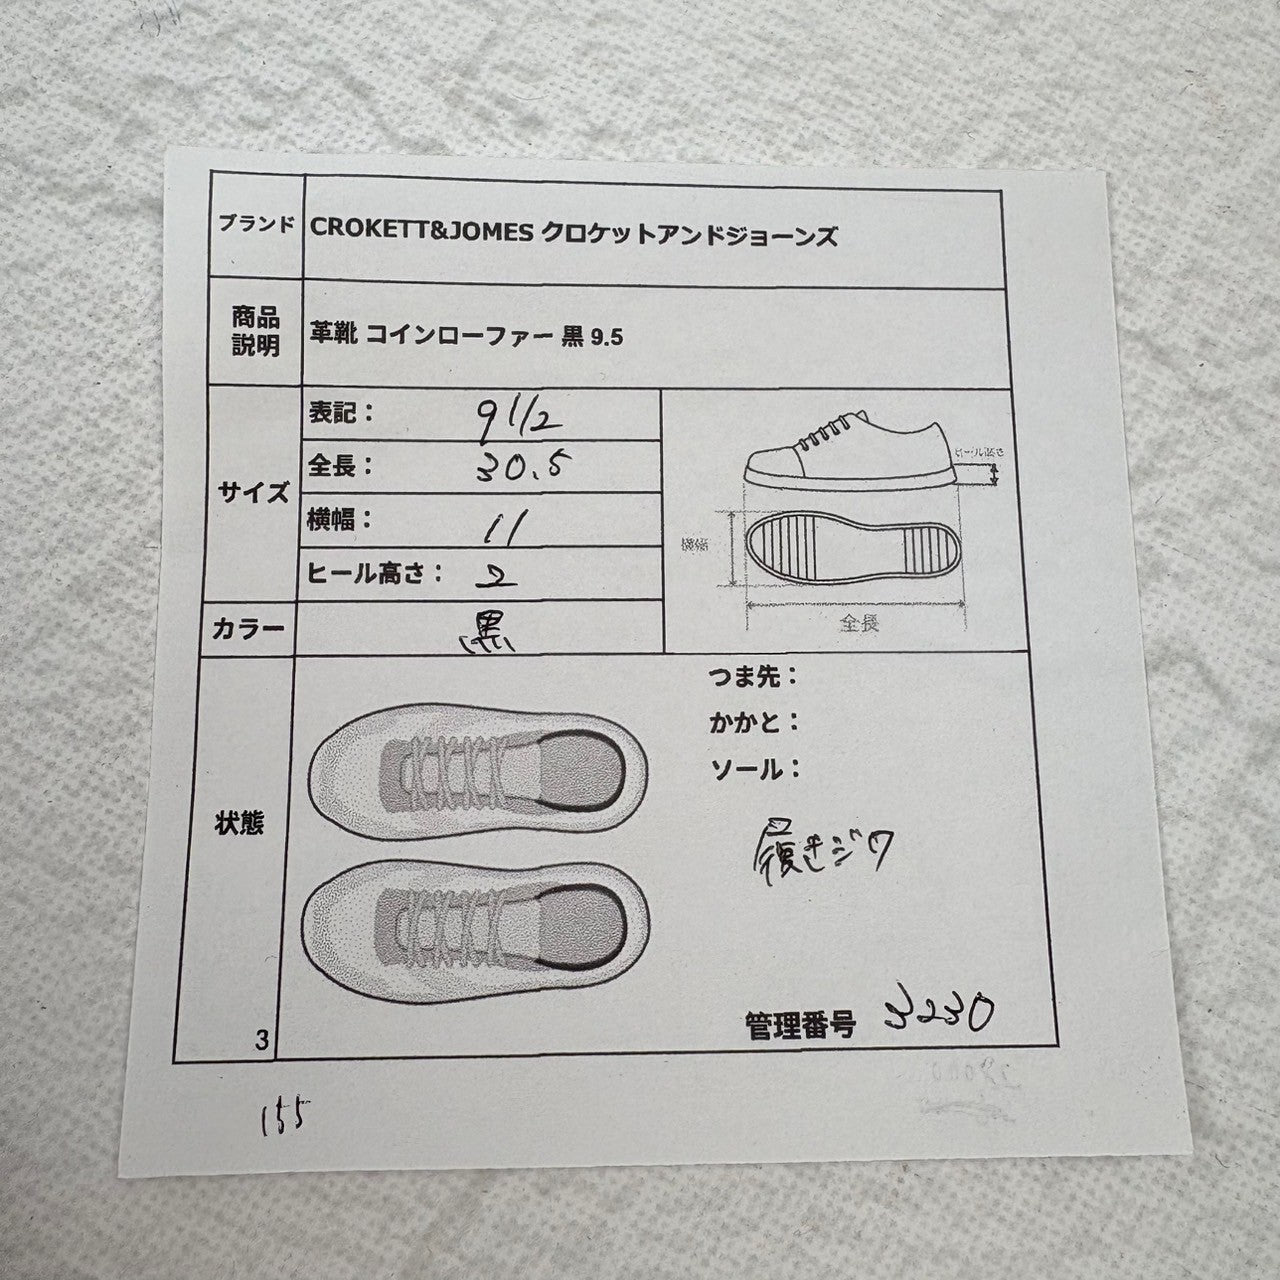 ブランド CROKETT&JOMES クロケットアンドジョーンズ
商品説明 革靴 コインローファー 黒 9.5
サイズ
表記: 9 1/2
全長: 30.5
横幅: 11
ヒール高さ: 2
ヒール高さ
横幅
全長
カラー 黒
状態
つま先:
かかと:
ソール:
履きジワ
管理番号 3230
3
155